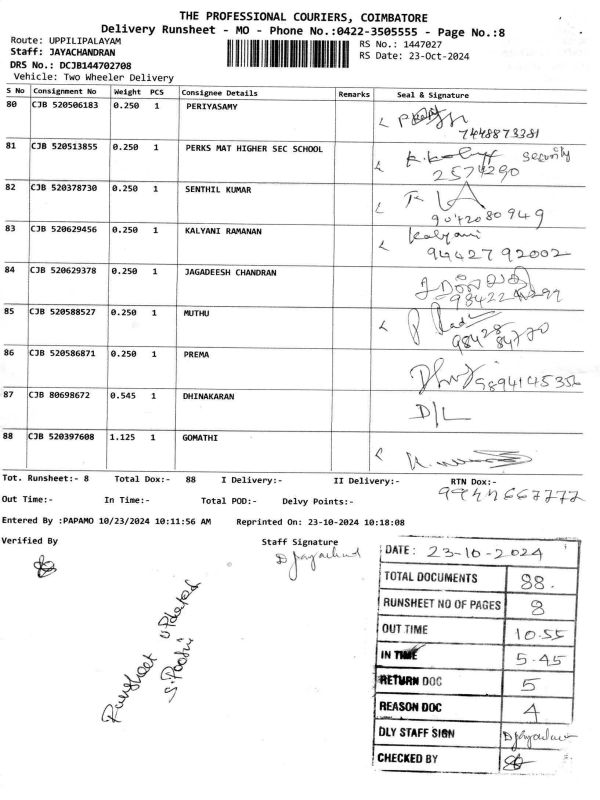 THE PROFESSIONAL COURIERS, COIMBATORE
Delivery Runsheet - MO - Phone No.:0422-3505555 - Page No.:8
Route: UPPILIPALAYAM
Staff: JAYACHANDRAN
DRS No.: DCJB144702708
Vehicle: Two Wheeler Delivery
RS No.: 1447027
RS Date: 23-Oct-2024
S No Consignment No Weight PCS Consignee Details Remarks Seal & Signature
80 CJB 520506183 0.250 1 PERIYASAMY
7448873381
81 CJB 520513855 0.250 1 PERKS MAT HIGHER SEC SCHOOL security
2574290
82 CJB 520378730 0.250 1 SENTHIL KUMAR
9042080949
83 CJB 520629456 0.250 1 KALYANI RAMANAN Kalyani
9442792002
84 CJB 520629378 0.250 1 JAGADEESH CHANDRAN
85 CJB 520588527 0.250 1 MUTHU
98428
84770
86 CJB 520586871 0.250 1 PREMA
9894145356
87 CJB 80698672 0.545 1 DHINAKARAN D/L
88 CJB 520397608 1.125 1 GOMATHI
Tot. Runsheet:- 8 Total Dox:- 88 I Delivery:- II Delivery:- RTN Dox:-
9944667772
Out Time:- In Time:- Total POD:- Delvy Points:-
Entered By :PAPAMO 10/23/2024 10:11:56 AM Reprinted On: 23-10-2024 10:18:08
Verified By Staff Signature
D Jayachand
Runsheet updated
S. Poorni
DATE: 23-10-2024
TOTAL DOCUMENTS 88.
RUNSHEET NO OF PAGES 8
OUT TIME 10.55
IN TIME 5.45
RETURN DOC 5
REASON DOC 4
DLY STAFF SIGN
CHECKED BY